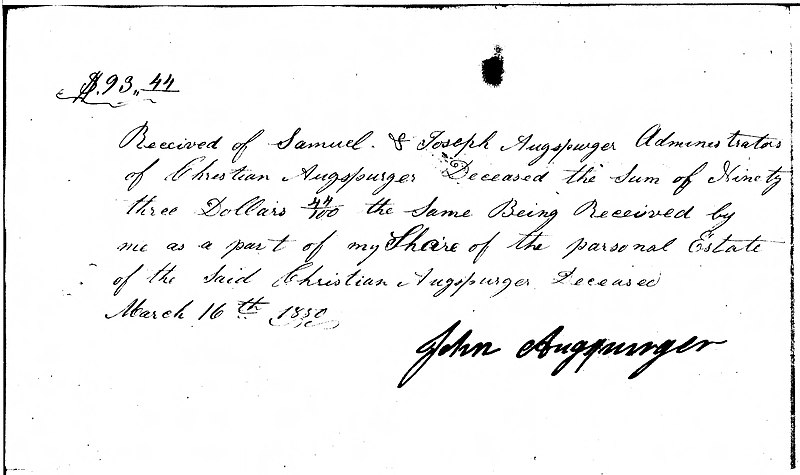 $.93,,44
Received of Samuel. & Joseph Augspurger Administrators
of Christian Augspurger Deceased the Sum of Ninety
three Dollars 44/100 the Same Being Received by
me as a part of my Share of the parsonal Estate
of the Said Christian Augspurger Deceased
March 16th 1850
John Augspurger